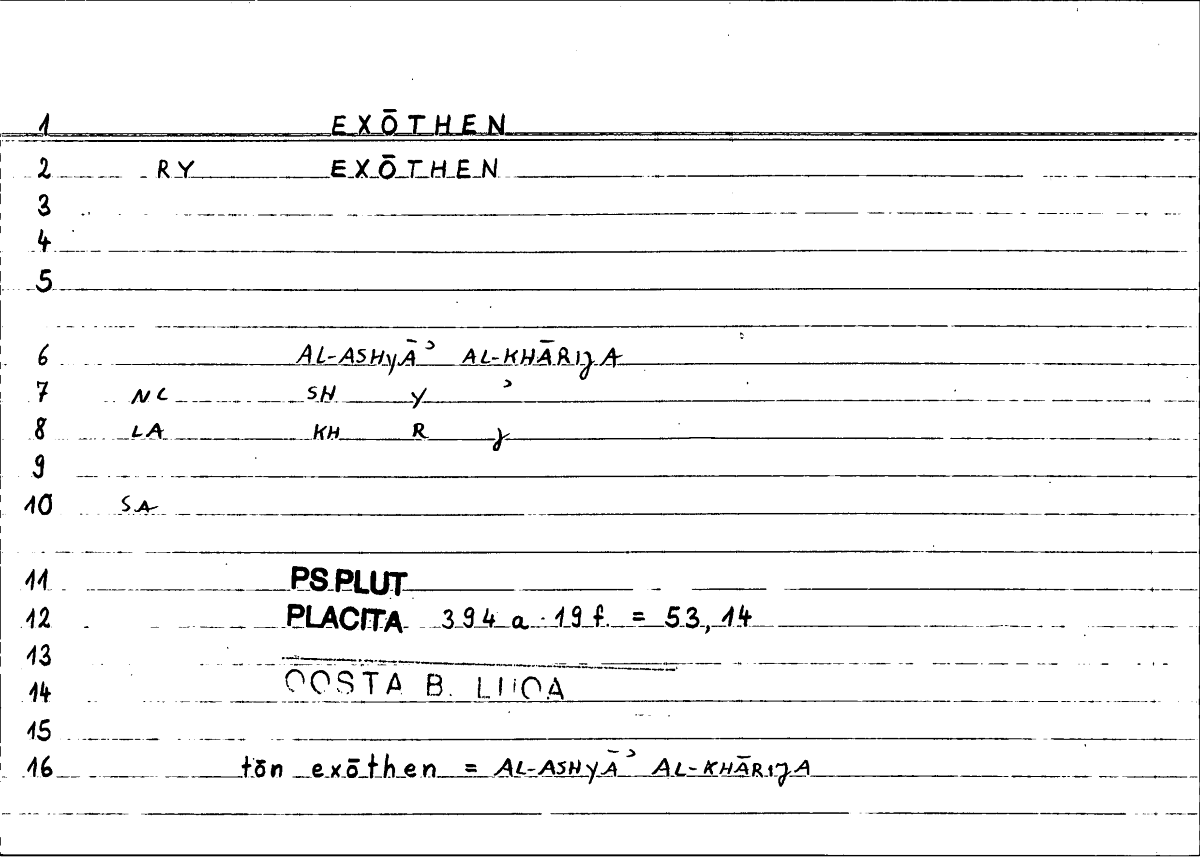 1 EXŌTHEN
2 RY EXŌTHEN
3
4
5
6 AL-ASHYĀʾ AL-KHĀRIJA
7 NC SH Y ʾ
8 LA KH R J
9
10 SA
11 PS.PLUT
12 PLACITA 394 a 19 f. = 53, 14
13
14 QOSTA B. LUQA
15
16 tōn exōthen = AL-ASHYĀʾ AL-KHĀRIJA